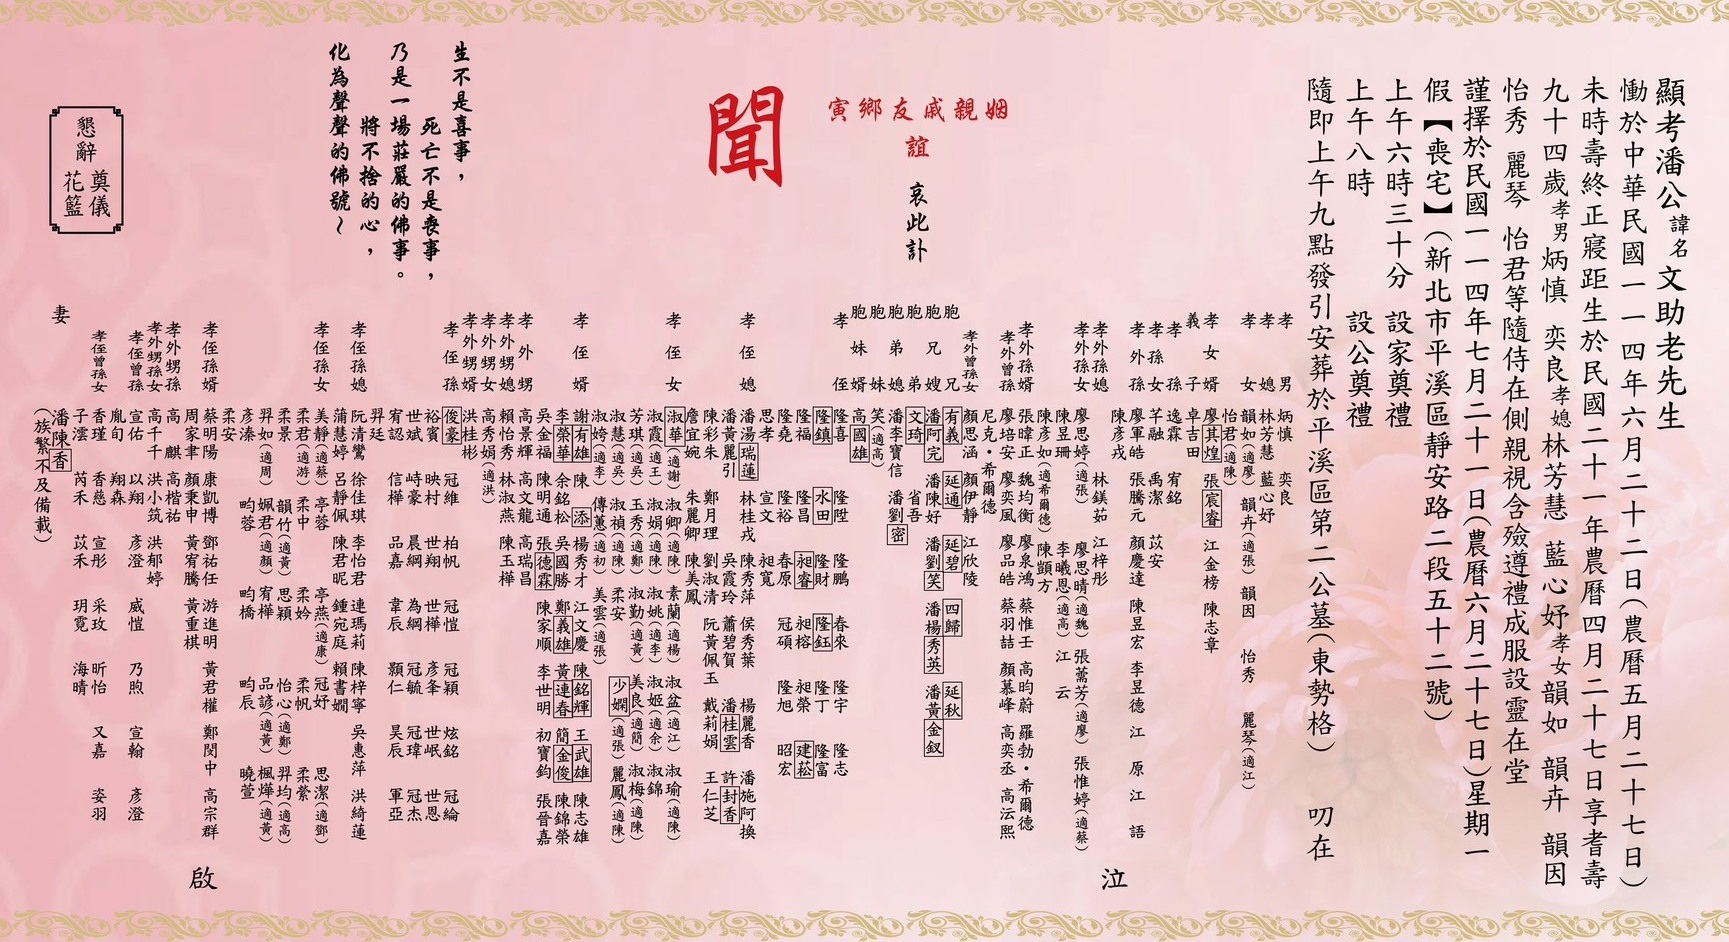 顯考潘公諱名文助老先生
慟於中華民國一一四年六月二十二日(農曆五月二十七日)
未時壽終正寢距生於民國二十一年農曆四月二十七日享耆壽
九十四歲孝男炳慎 奕良孝媳林芳慧 藍心妤孝女韻如 韻卉 韻因
怡秀 麗琴 怡君等隨侍在側親視含殮遵禮成服設靈在堂
謹擇於民國一一四年七月二十一日(農曆六月二十七日)星期一
假【喪宅】(新北市平溪區靜安路二段五十二號)
上午六時三十分 設家奠禮
上午八時 設公奠禮
隨即上午九點發引安葬於平溪區第二公墓(東勢格) 叨在
姻親戚友鄉寅
誼
哀此訃
聞
孝男 炳慎 奕良
孝媳 林芳慧 藍心妤
孝女 韻如(適廖) 韻卉(適張) 韻因 怡秀 麗琴(適江)
怡君(適陳)
孝女婿 廖其煌 張宸睿 江金榜 陳志章
義子 卓吉田
孝孫 逸霖 宥銘
孝孫女 芊融 禹潔 苡安
孝外孫 廖軍皓 張騰元 顏慶達 陳昱宏 李昱德 江原 江語
陳彥戎
孝外孫媳 林鎂茹 江梓彤
孝外孫女 廖思婷(適張) 廖思晴(適魏) 張蓠芳(適廖) 張惟婷(適蔡)
陳昱珊 李曦恩(適高) 江云
陳彥如(適希爾德) 陳顗方
孝外孫婿 張暐正 魏均衡 廖泉鴻 蔡惟壬 高昀蔚 羅勃・希爾德
孝外曾孫 廖培安 廖奕風 廖品皓 蔡羽喆 顏慕峰 高奕丞 高沄熙
尼克・希爾德
孝外曾孫女 顏思涵 顏伊靜 江欣陵
胞兄 有義 延通 延碧 四歸 延秋
胞兄嫂 潘阿完 潘陳好 潘劉笑 潘楊秀英 潘黃金釵
胞弟 文琦 省吾
胞弟媳 潘李寶信 潘劉密
胞妹 笑(適高)
胞妹婿 高國雄
孝侄 隆喜 隆陞 隆鵬 春來 隆宇 隆志
隆鎮 水田 隆財 隆鈺 隆丁 隆富
隆福 隆昌 昶睿 昶榕 昶榮 建菘
隆堯 隆裕 春原 冠碩 隆旭 昭宏
思孝 宣文 昶寬
孝侄媳 潘湯瑞蓮 林桂戎 陳秀萍 侯秀葉 楊麗香 潘施阿換
潘黃麗引 吳霞玲 蕭碧賀 潘桂雲 許封香
陳彩朱 鄭月理 劉淑清 阮黃佩玉 戴莉娟 王仁芝
詹宜婉 朱麗卿 陳美鳳
孝侄女 淑華(適謝) 淑卿(適陳) 素蘭(適楊) 淑盆(適江) 淑瑜(適陳)
淑霞(適王) 淑娟(適陳) 淑姚(適李) 淑姬(適余) 淑錦
芳琪(適吳) 玉秀(適鄭) 淑勤(適黃) 美良(適簡) 淑梅(適陳)
淑慧(適吳) 淑禎(適陳) 柔安 少嫻(適張) 麗鳳(適陳)
淑姱(適李) 傳蕙(適初) 美雲(適張)
孝侄婿 謝有雄 陳添 楊秀才 江文慶 陳銘輝 王武雄 陳志雄
李榮華 余銘松 吳國勝 鄭義雄 黃連春 簡金俊 陳錦榮
吳金福 陳明通 張德霖 陳家順 李世明 初寶鈞 張晉嘉
孝外甥 高景輝 高文龍 高瑞昌
孝外甥媳 賴怡秀 林淑燕 陳玉樺
孝外甥女 高秀娟(適洪)
孝外甥婿 洪桂彬
孝侄孫 俊豪 冠維 柏帆 冠愷 冠穎 炫銘 冠綸
裕賓 映村 世翔 世樺 彥夆 世岷 世恩
世斌 峙豪 晨綱 為綱 冠毓 冠瑋 冠杰
宥認 信樺 品嘉 韋辰 顥仁 昊辰 軍亞
羿廷
孝侄孫媳 阮清鸞 徐佳琪 李怡君 連瑪莉 陳梓寧 吳惠萍 洪綺蓮
蒲慧婷 呂靜佩 陳君昵 鍾宛庭 賴書嫻
孝侄孫女 美靜(適蔡) 亭蓉 亭燕(適康) 冠妤 思潔(適鄧)
柔君(適游) 柔中 柔妗 柔帆 柔縈
柔景 韻竹(適黃) 思穎 怡心(適鄭) 羿均(適高)
羿如(適周) 姵君(適顏) 宥樺 品諺(適黃) 楓燁(適黃)
彥溱 昀蓉 昀橋 昀辰 曉萱
柔安
孝侄孫婿 蔡明陽 康凱博 鄧祐任 游進明 黃君權 鄭閔中 高宗群
周家聿 顏秉申 黃宥騰 黃重棋
孝外甥孫 高麒 高楷祐
孝外甥孫女 高千千 洪小筑 洪郁婷
孝侄曾孫 宣佑 以翔 彥澄 威愷 乃煦 宣翰 彥澄
胤旬 翔森
孝侄曾孫女 香瑾 香慈 宣彤 采玫 昕怡 又嘉 姿羽
子澐 芮禾 苡禾 玥霓 海晴
妻 潘陳香
(族繁不及備載)
泣
啟
生不是喜事,
死亡不是喪事,
乃是一場莊嚴的佛事。
將不捨的心,
化為聲聲的佛號~
懇辭
奠儀
花籃